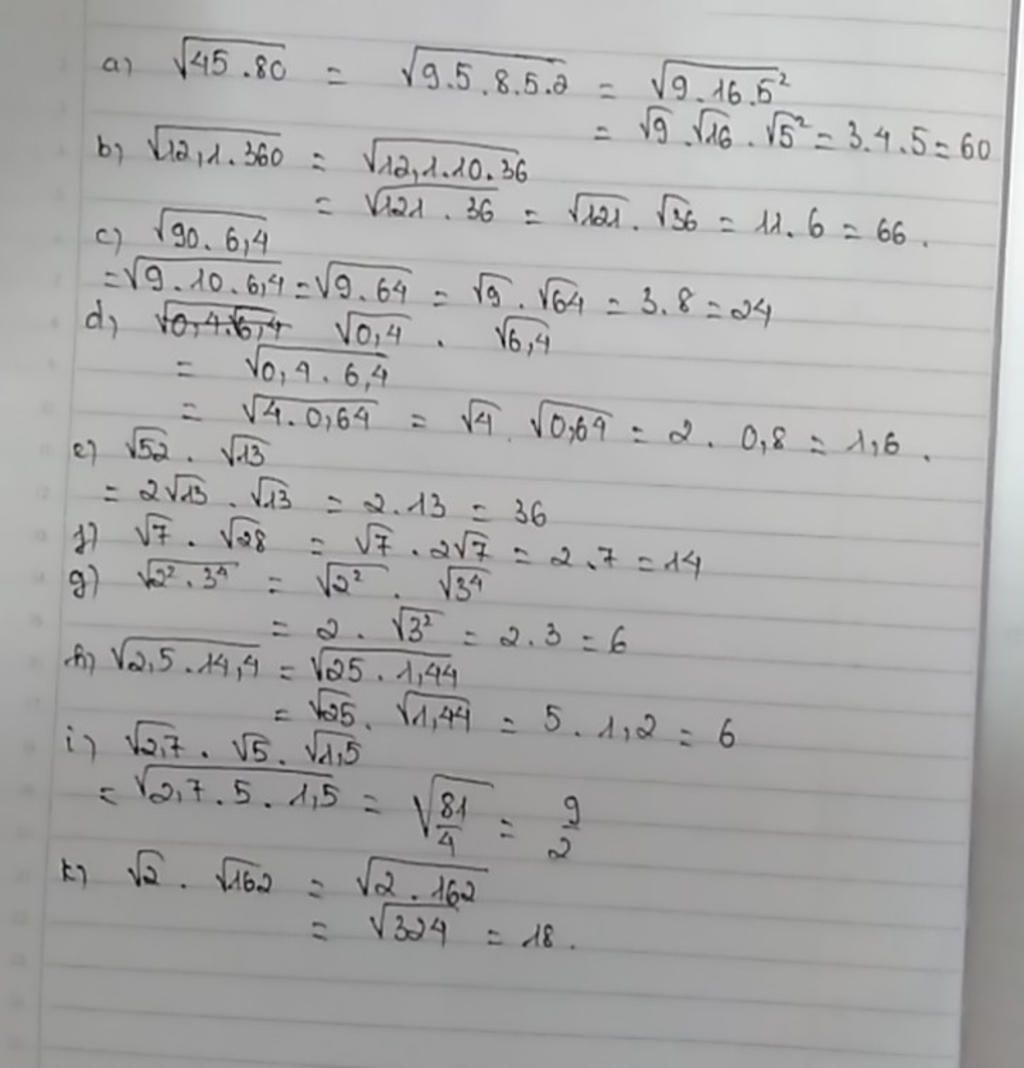 a) √45.80 = √9.5.8.5.2 = √9.16.5²
= √9.√16.√5² = 3.4.5 = 60
b) √12,1.360 = √12,1.10.36
= √121.36 = √121.√36 = 11.6 = 66.
c) √90.6,4
= √9.10.6,4 = √9.64 = √9.√64 = 3.8 = 24
d) √0,4.√6,4 √0,4 . √6,4
= √0,4.6,4
= √4.0,64 = √4.√0,64 = 2.0,8 = 1,6.
e) √52.√13
= 2√13.√13 = 2.13 = 36
f) √7.√28 = √7.2√7 = 2.7 = 14
g) √2².3⁴ = √2².√3⁴
= 2.√3² = 2.3 = 6
h) √2,5.14,4 = √25.1,44
= √25.√1,44 = 5.1,2 = 6
i) √2,7.√5.√1,5
= √2,7.5.1,5 = √81/4 = 9/2
k) √2.√162 = √2.162
= √324 = 18.